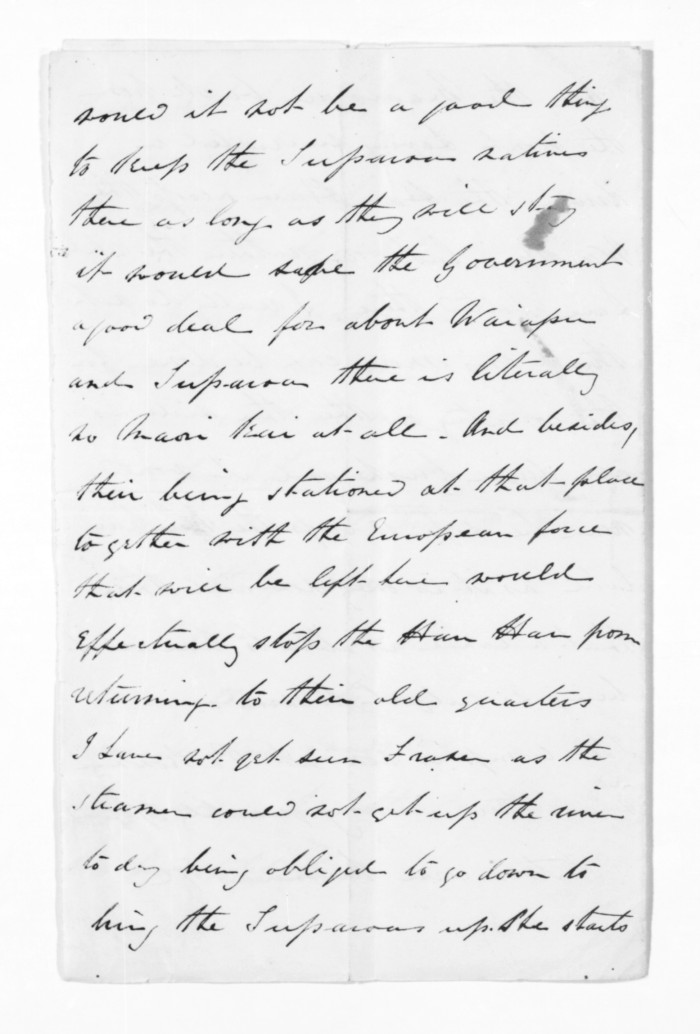 would it not be a good thing
to keep the Tuparoa natives
there as long as they will stay
it would save the Government
a good deal for about Waiapu
and Tuparoa there is literally
no Maori Kai at all - And besides,
their being stationed at that place
together with the European force
that will be left here would
Effectually stop the Hau Hau from
returning to their old quarters
I have not yet seen Fraser as the
steamer could not get up the river
to day being obliged to go down to
bring the Tuparoas up. She starts